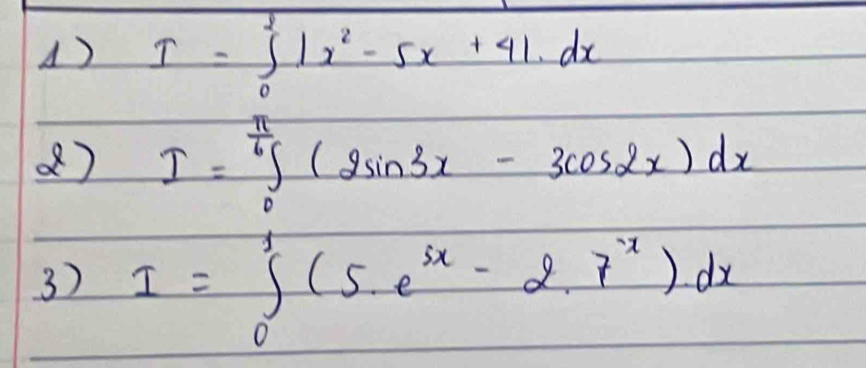 1) I = ∫₀² |x² - 5x + 4|. dx
2) I = ∫₀^(π/6) (2sin3x - 3cos2x) dx
3) I = ∫₀¹ (5. e^(5x) - 2. 7^(-x)). dx